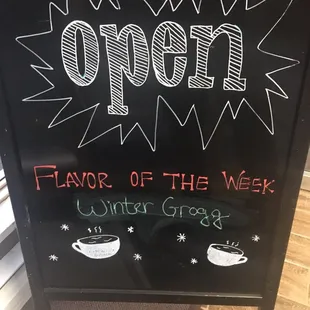 open
FLAVOR OF THE WEEK
Winter Grogg